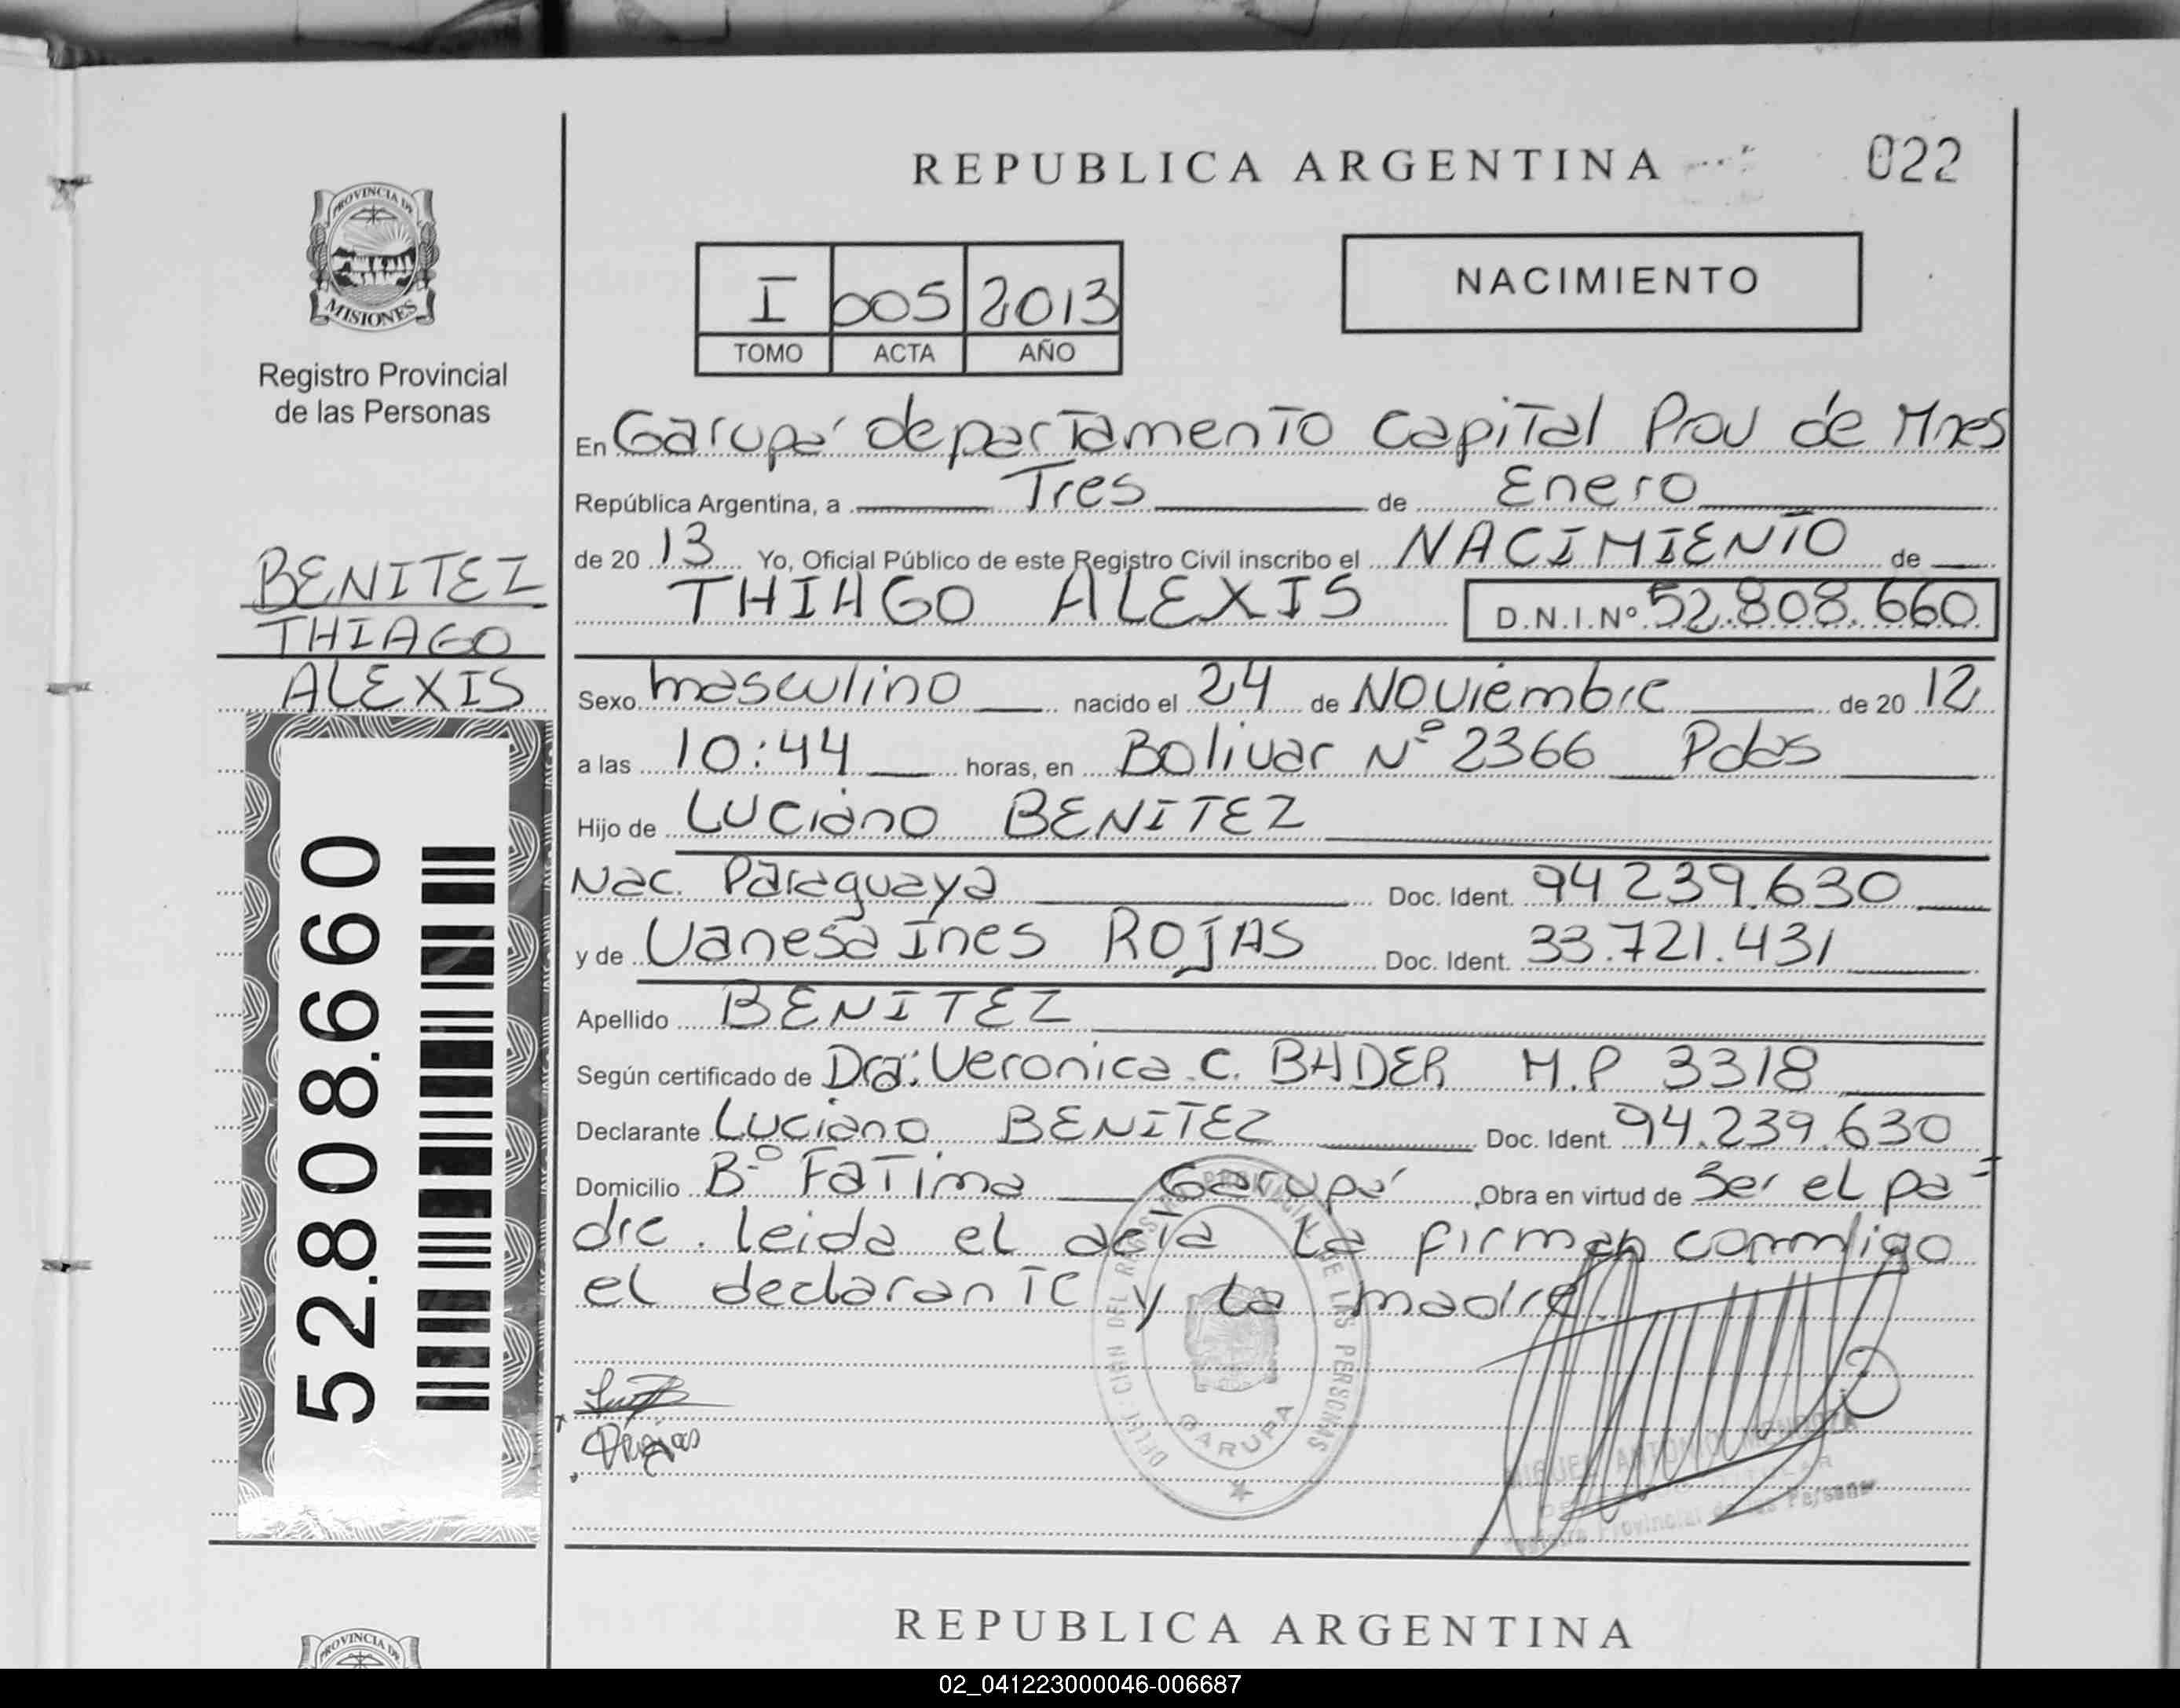 REPUBLICA ARGENTINA
022
PROVINCIA DE
MISIONES
Registro Provincial
de las Personas
I 005 2013
TOMO ACTA AÑO
NACIMIENTO
En Garupa' departamento Capital Prov de Mnes
República Argentina, a Tres de Enero
de 20 13 Yo, Oficial Público de este Registro Civil inscribo el NACIMIENTO de
THIAGO ALEXIS D.N.I.Nº 52.808.660
BENITEZ
THIAGO
ALEXIS
52.808.660
Sexo masculino nacido el 24 de Noviembre de 20 12
a las 10:44 horas, en Bolivar Nº 2366 Pdas
Hijo de Luciano BENITEZ
Nac. Paraguaya Doc. Ident. 94 239.630
y de Vanesa Ines ROJAS Doc. Ident. 33.721.431
Apellido BENITEZ
Según certificado de Dra: Veronica C. BADER M.P 3318
Declarante Luciano BENITEZ Doc. Ident. 94.239.630
Domicilio Bº Fatima Garupa' Obra en virtud de Ser el pa-
dre. leida el acta la firman conmigo
el declarante y la madre.
DEL REGISTRO PROVINCIAL DE LAS PERSONAS
GARUPA
MIGUEL ANTONIO MENDOZA
TITULAR
Registro Provincial de las Personas
REPUBLICA ARGENTINA
PROVINCIA DE
02_041223000046-006687